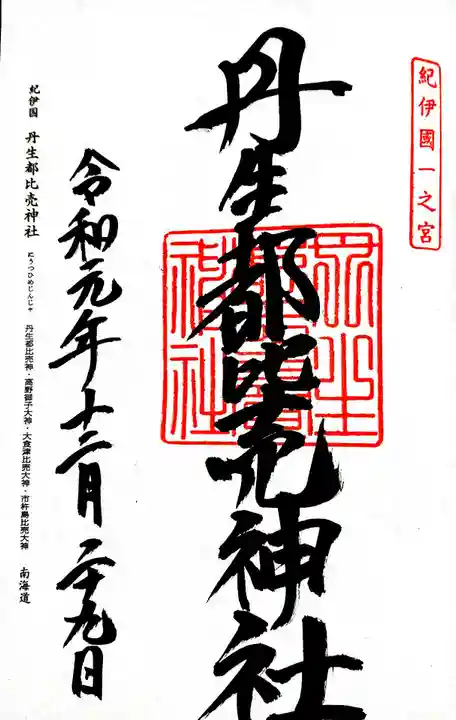 紀伊國一之宮
丹生都比売神社
令和元年十二月二十九日
紀伊国 丹生都比売神社
にうつひめじんじゃ 丹生都比売神・高野御子大神・大食津比売大神・市杵島比売大神 南海道